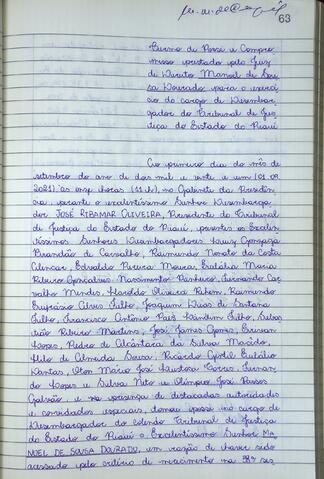 63
Termo de Posse e Compro
misso prestado pelo Juiz
de Direito Manoel de Sou
sa Dourado para o exercí
cio do cargo de Desembar
gador do Tribunal de Jus
tiça do Estado do Piauí
Ao primeiro dia do mês de
setembro do ano de dois mil e vinte e um (01.09.
2021) às onze horas (11h), no Gabinete da Presidên
cia, perante o excelentíssimo Senhor Desembarga
dor JOSÉ RIBAMAR OLIVEIRA, Presidente do Tribunal
de Justiça do Estado do Piauí, presentes os Excelen
tíssimos Senhores Desembargadores Luiz Gonzaga
Brandão de Carvalho, Raimundo Nonato da Costa
Alencar, Edvaldo Pereira Moura, Eulália Maria
Ribeiro Gonçalves Nascimento Pinheiro, Fernando Car
valho Mendes, Haroldo Oliveira Rehem, Raimundo
Eufrásio Alves Filho, Joaquim Dias de Santana
Filho, Francisco Antônio Paes Landim Filho, Sebas
tião Ribeiro Martins, José James Gomes, Erivan
Lopes, Pedro de Alcântara da Silva Macêdo,
Hilo de Almeida Sousa, Ricardo Gentil Eulálio
Dantas, Oton Mário José Lustosa Torres, Fernan
do Lopes e Silva Neto e Olímpio José Passos
Galvão, e na presença de destacadas autoridades
e convidados especiais, tomou posse no cargo de
Desembargador do colendo Tribunal de Justiça
do Estado do Piauí o Excelentíssimo Senhor MA
NOEL DE SOUSA DOURADO, em razão de haver sido
acessado pelo critério de merecimento na 98ª ses